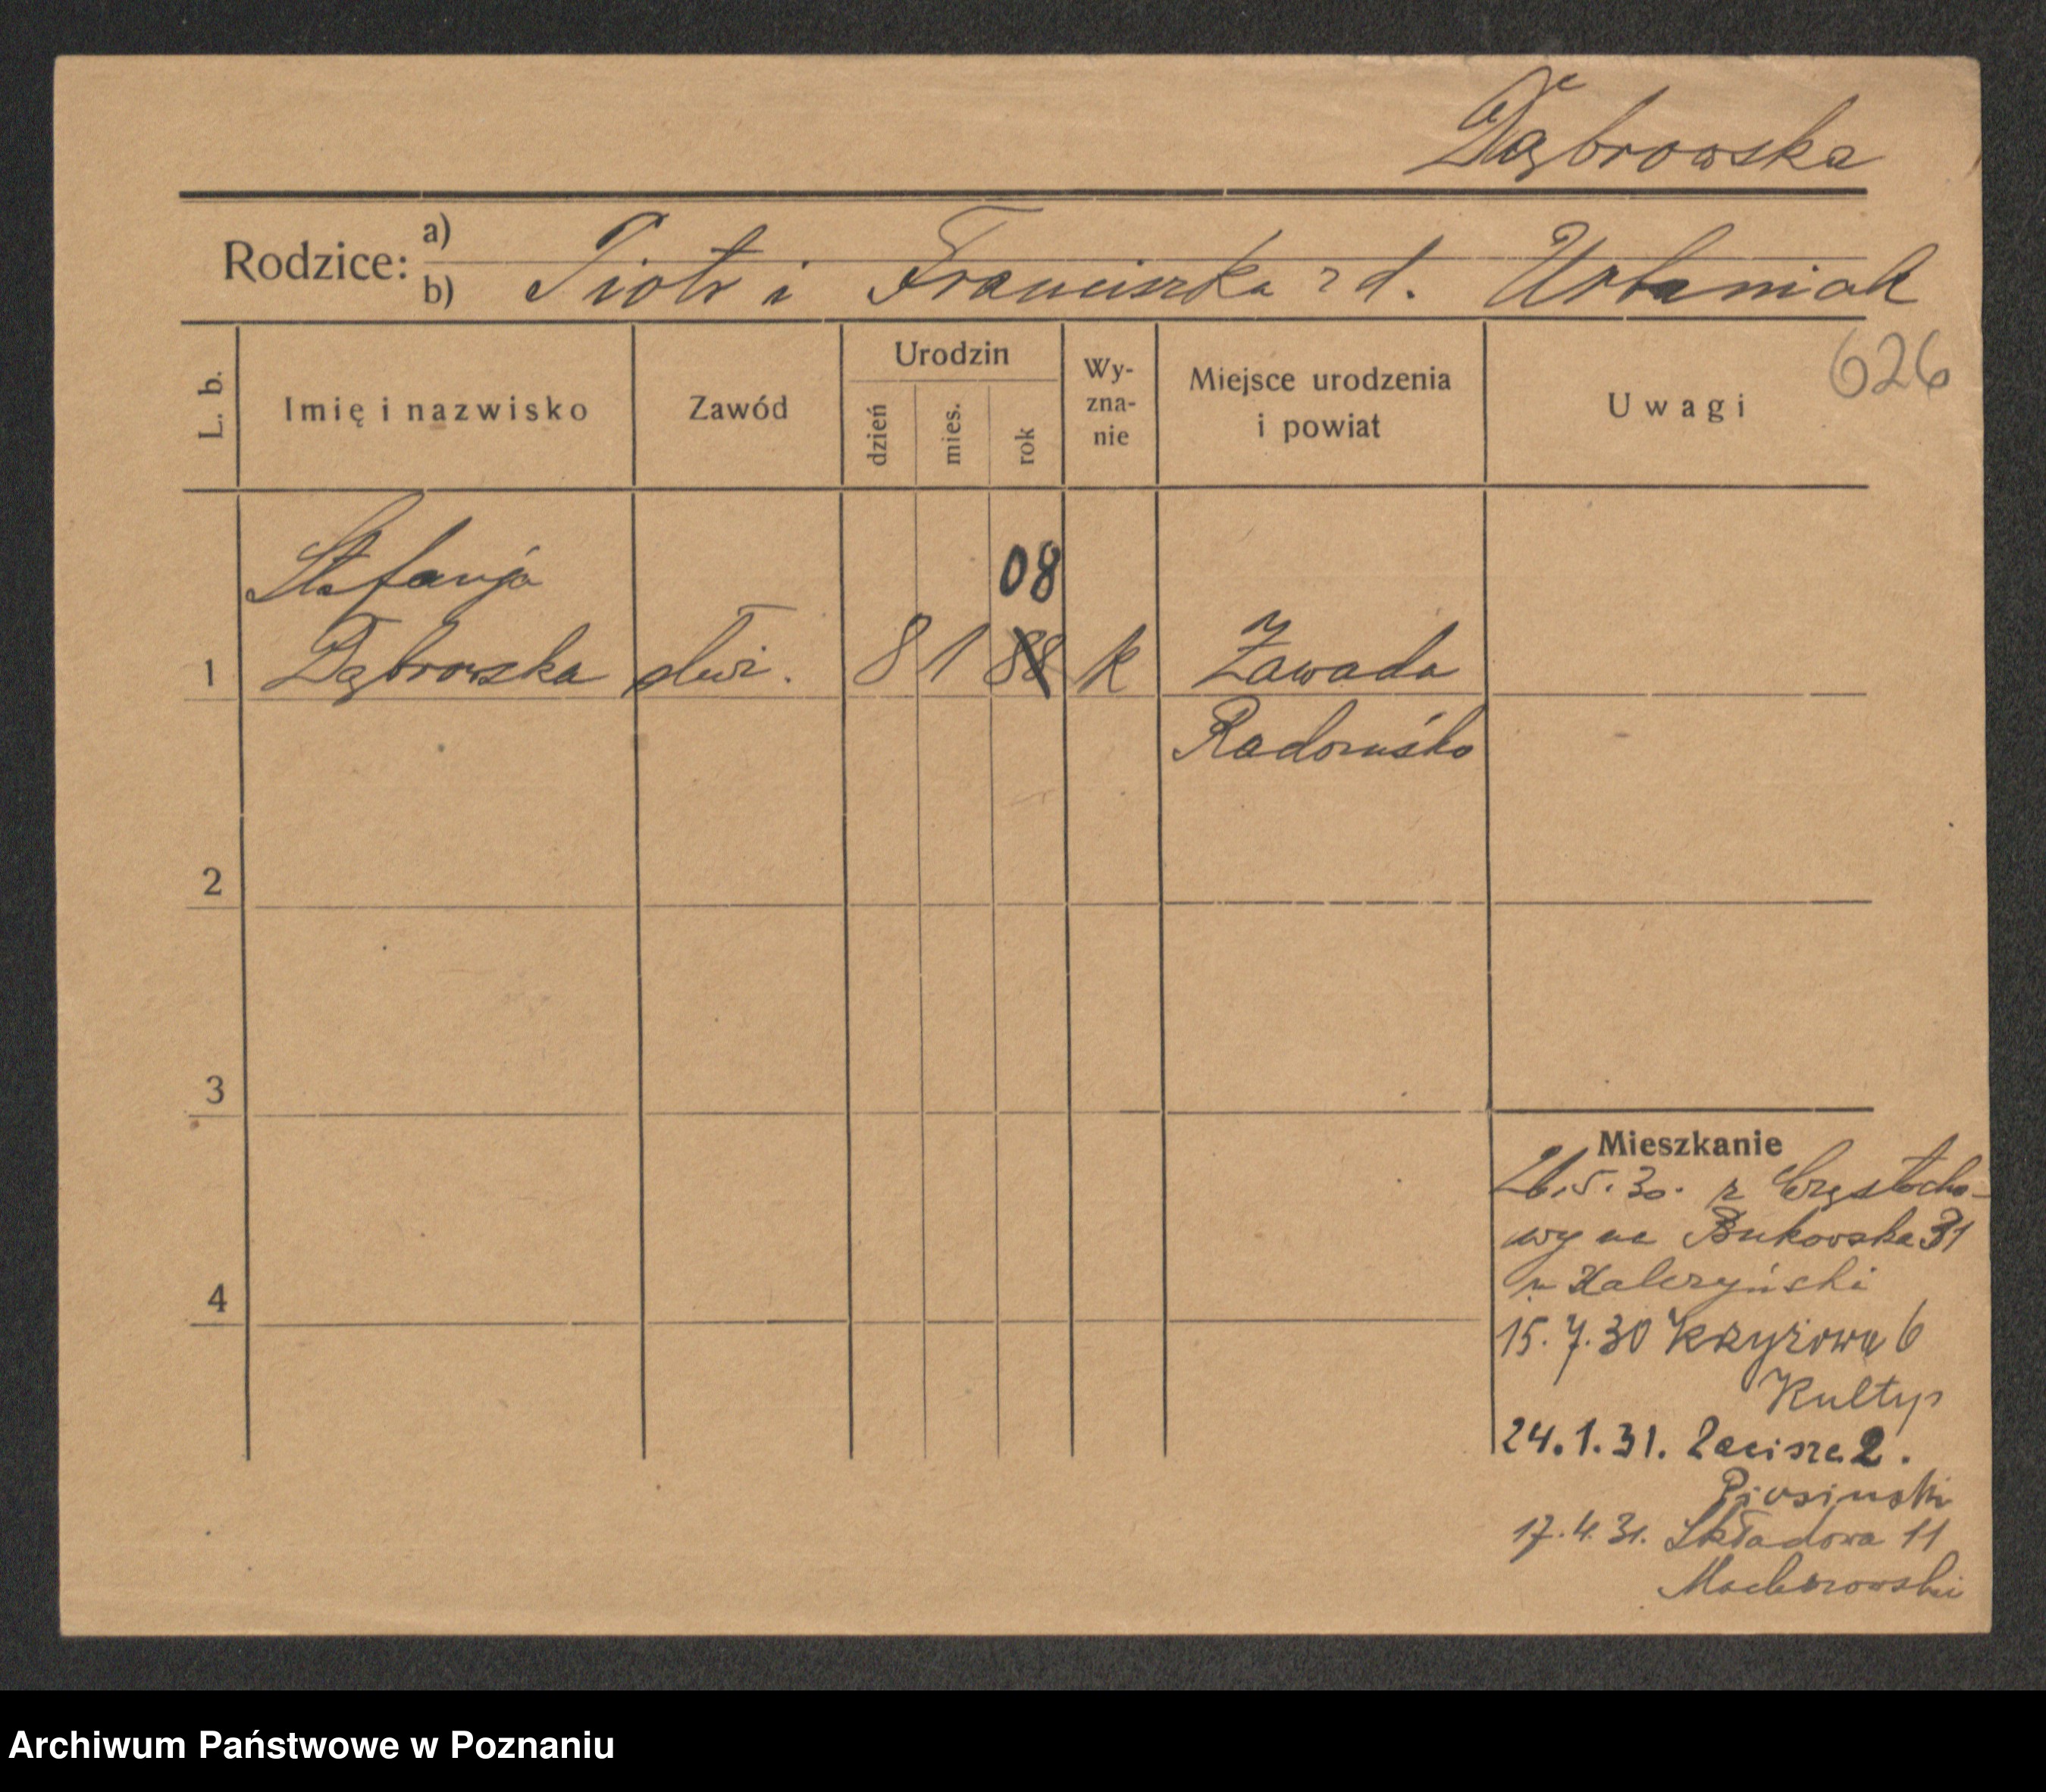 Dąbrowska
Rodzice: a)
b) Piotr i Franciszka z d. Urbaniak
626
L. b.
Imię i nazwisko
Zawód
Urodzin
dzień
mies.
rok
Wy-
zna-
nie
Miejsce urodzenia
i powiat
Uwagi
Stefanja
08
1 Dąbrowska służ. 8 1 88 k Zawada
Radomsko
2
3
4
Mieszkanie
26.5.30. z Częstocho-
wy na Bukowska 31
15.7.30 Krzyżowa 6
24.1.31. Zacisze 2.
17.4.31. Składowa 11
Archiwum Państwowe w Poznaniu